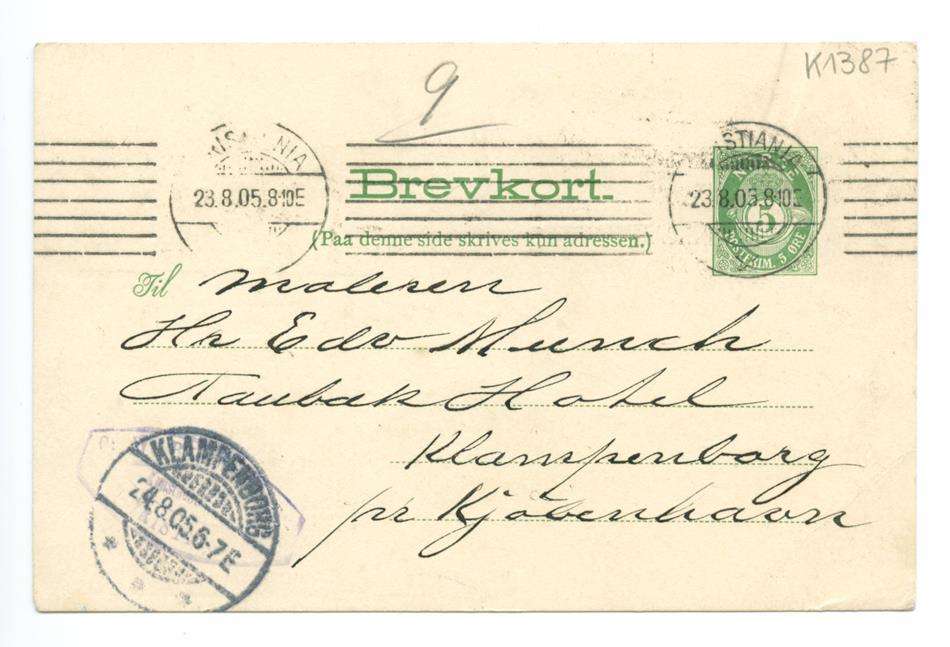 K1387
9
KRISTIANIA
23.8.05.8-10E
STIANIA
23.8.05.8-10E
Brevkort.
(Paa denne side skrives kun adressen.)
NORGE
5
POSTFRIM. 5 ØRE
Til Maleren
Hr Edv Munch
Taubæk Hotel
Klampenborg
pr Kjöbenhavn
KLAMPENBORG
24.8.05.6-7E